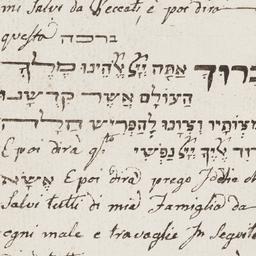 mi Salvi da Peccati e poi dirà
questa ברכה
ברוך אתה ייָ אלהינו מלך
העולם אשר קדשנו
במצותיו וצונו להפריש חלה
E poi dirà q.^to ייָ נפשי
אשא E poi dirà prego Iddio
Salvi tutti di mia Famiglia da
egni male e travaglie In Seguito